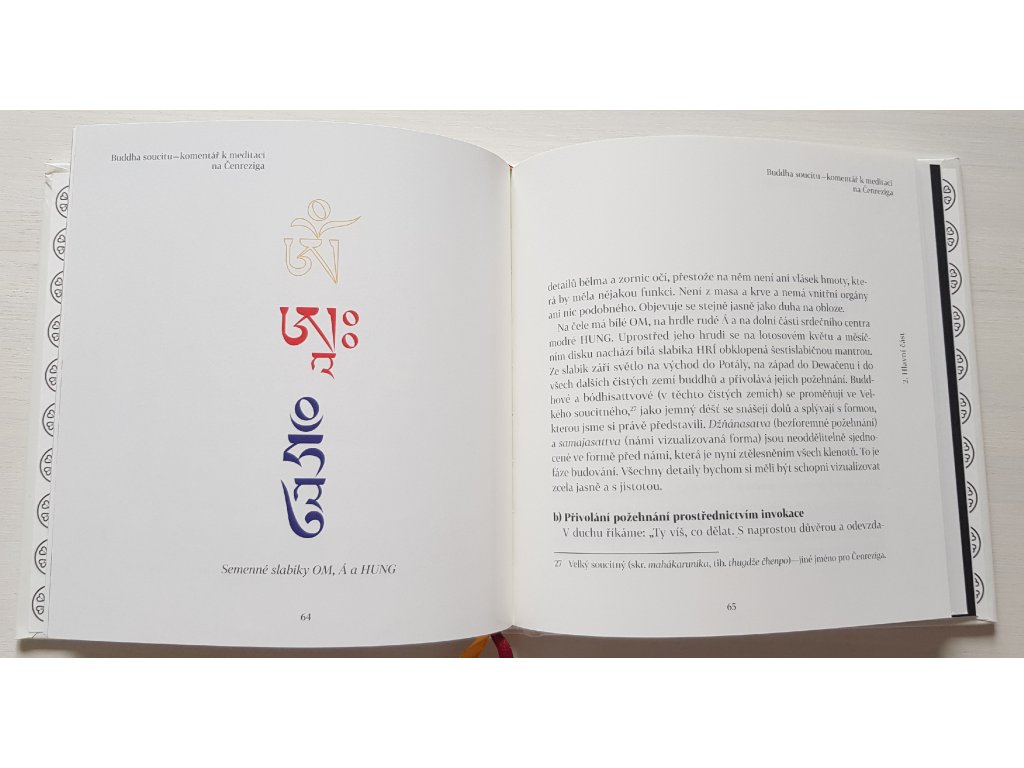 Buddha soucitu—komentář k meditaci
na Čenreziga
ༀ
ཨཱཿ
ཧཱུྃ
Semenné slabiky OM, Á a HUNG
64
Buddha soucitu—komentář k meditaci
na Čenreziga
detailů bělma a zornic očí, přestože na něm není ani vlásek hmoty, kte-
rá by měla nějakou funkci. Není z masa a krve a nemá vnitřní orgány
ani nic podobného. Objevuje se stejně jasně jako duha na obloze.
Na čele má bílé OM, na hrdle rudé Á a na dolní části srdečního centra
modré HUNG. Uprostřed jeho hrudi se na lotosovém květu a měsíč-
ním disku nachází bílá slabika HRÍ obklopená šestislabičnou mantrou.
Ze slabik září světlo na východ do Potály, na západ do Dewačenu i do
všech dalších čistých zemí buddhů a přivolává jejich požehnání. Budd-
hové a bódhisattvové (v těchto čistých zemích) se proměňují ve Vel-
kého soucitného,27 jako jemný déšť se snášejí dolů a splývají s formou,
kterou jsme si právě představili. Džňánasatva (bezforemné požehnání)
a samajasattva (námi vizualizovaná forma) jsou neoddělitelně sjedno-
cené ve formě před námi, která je nyní ztělesněním všech klenotů. To je
fáze budování. Všechny detaily bychom si měli být schopni vizualizovat
zcela jasně a s jistotou.
b) Přivolání požehnání prostřednictvím invokace
V duchu říkáme: „Ty víš, co dělat. S naprostou důvěrou a odevzda-
27 Velký soucitný (skr. mahákarunika, tib. thugdže čhenpo)—jiné jméno pro Čenreziga.
65
2. Hlavní část